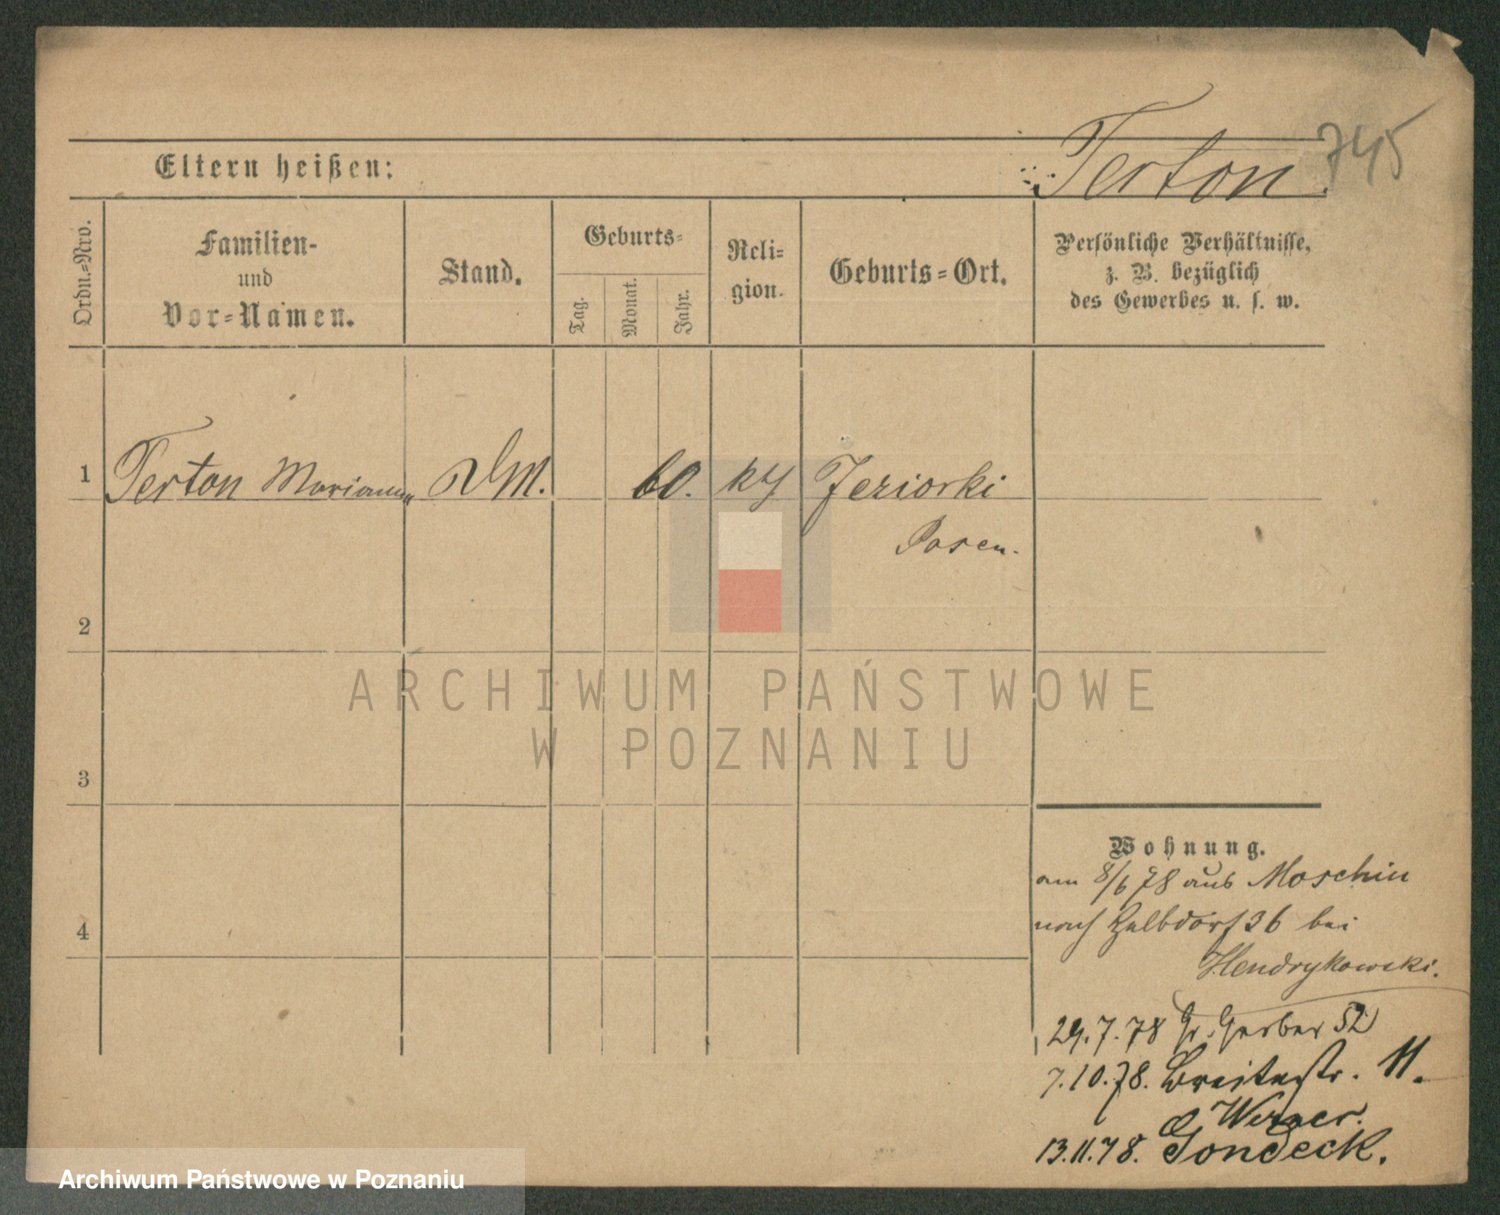 745
Eltern heißen:
Terton.
Ordn.-Nro.
Familien-
und
Vor-Namen.
Stand.
Geburts-
Tag.
Monat.
Jahr.
Reli-
gion.
Geburts-Ort.
Persönliche Verhältnisse,
z. B. bezüglich
des Gewerbes u. s. w.
1
Terton Marianna
DM.
60.
Jeziorki
Posen.
2
3
4
ARCHIWUM PAŃSTWOWE
W POZNANIU
Wohnung.
am 8/6 78 aus Moschin
nach Halbdorf 36 bei
Hendrykowski.
29.7.78 Gr. Gerber 52
7.10.78. Breitestr. 11.
Werner.
13.11.78. Gondeck.
Archiwum Państwowe w Poznaniu